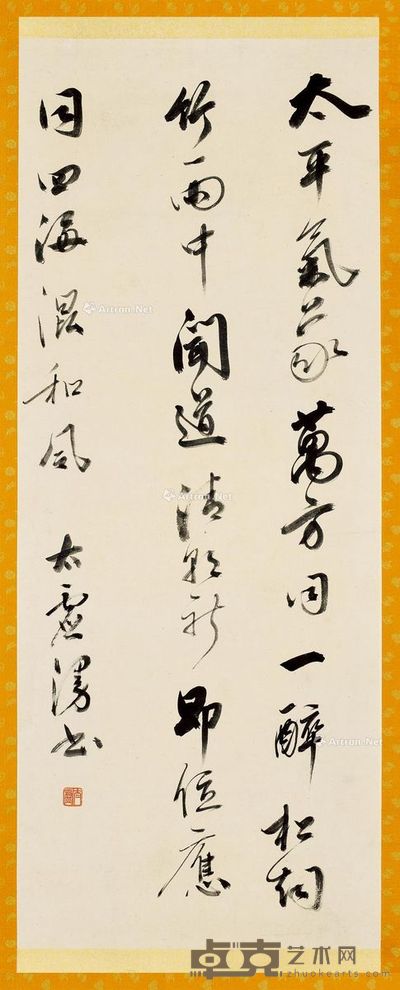 太平氣象萬方同一醉松
竹雨中聞道清朝新即位應
同四海混和風
太虛漫書
Artron.Net
Artron.Net
Artron.Net
卓克艺术网
www.zhuokearts.com